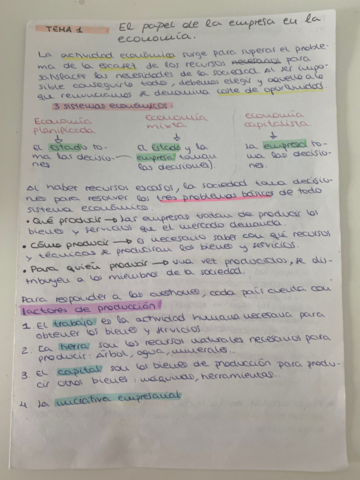 TEMA 1 El papel de la empresa en la
economía.
La actividad económica surge para superar el proble-
ma de la escasez de los recursos necesarios para
satisfacer las necesidades de la sociedad. Al ser impo-
sible conseguirlo todo, debemos elegir y aquello a lo
que renunciamos se denomina coste de oportunidad
3 sistemas económicos
Economía planificada Economía mixta economía capitalista
El estado to-
ma las decisio-
nes
El Estado y la
empresa toman
las decisiones.
La empresa to-
ma las decisio-
nes.
Al haber recursos escasos, la sociedad toma decisio-
nes para resolver los tres problemas básicos de todo
sistema económico.
• Qué producir → las empresas tratan de producir los
bienes y servicios que el mercado demanda.
• Cómo producir → es necesario saber con qué recursos
y técnicas se producirán los bienes y servicios.
• Para quién producir → una vez producidos, se dis-
tribuyen a los miembros de la sociedad.
Para responder a las cuestiones, cada país cuenta con
factores de producción:
1 El trabajo es la actividad humana necesaria para
obtener los bienes y servicios.
2 La tierra son los recursos naturales necesarios para
producir: árbol, agua, minerales...
3 El capital son los bienes de producción para produ-
cir otros bienes: máquinas, herramientas...
4 La iniciativa empresarial